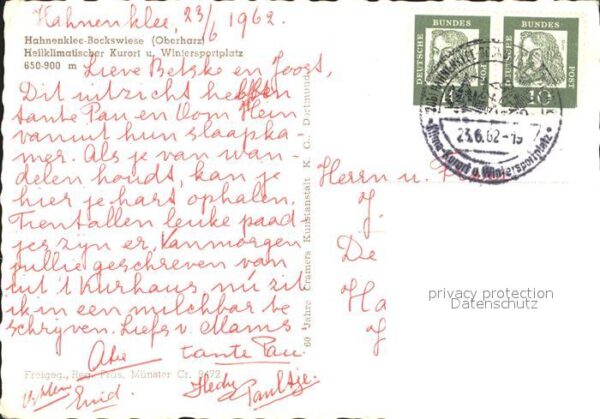 Hahnenklee, 23/6 1962.
Hahnenklee-Bockswiese (Oberharz)
Heilklimatischer Kurort u. Wintersportplatz
650-900 m
Lieve Betske en Joost,
Dit uitzicht hebben
tante Pau en Oom Hein
vanuit hun slaapka-
mer. Als je van wan-
delen houdt, kan je
hier je hart ophalen.
Tientallen leuke paad
jes zijn er. Vanmorgen
jullie geschreven van
uit 't Kurhaus, nu zit
ik in een milchbar te
schrijven. Liefs v. Mams
tante Pau.
Freigeg., Reg. Präs. Münster Cr. 9672
60 Jahre Cramers Kunstanstalt K. G., Dortmund
DEUTSCHE BUNDES POST
10
DEUTSCHE BUNDES POST
10
23.6.62-19
Kurort u. Wintersportplatz
Herrn u.
J.
De
Ha
J
privacy protection
Datenschutz